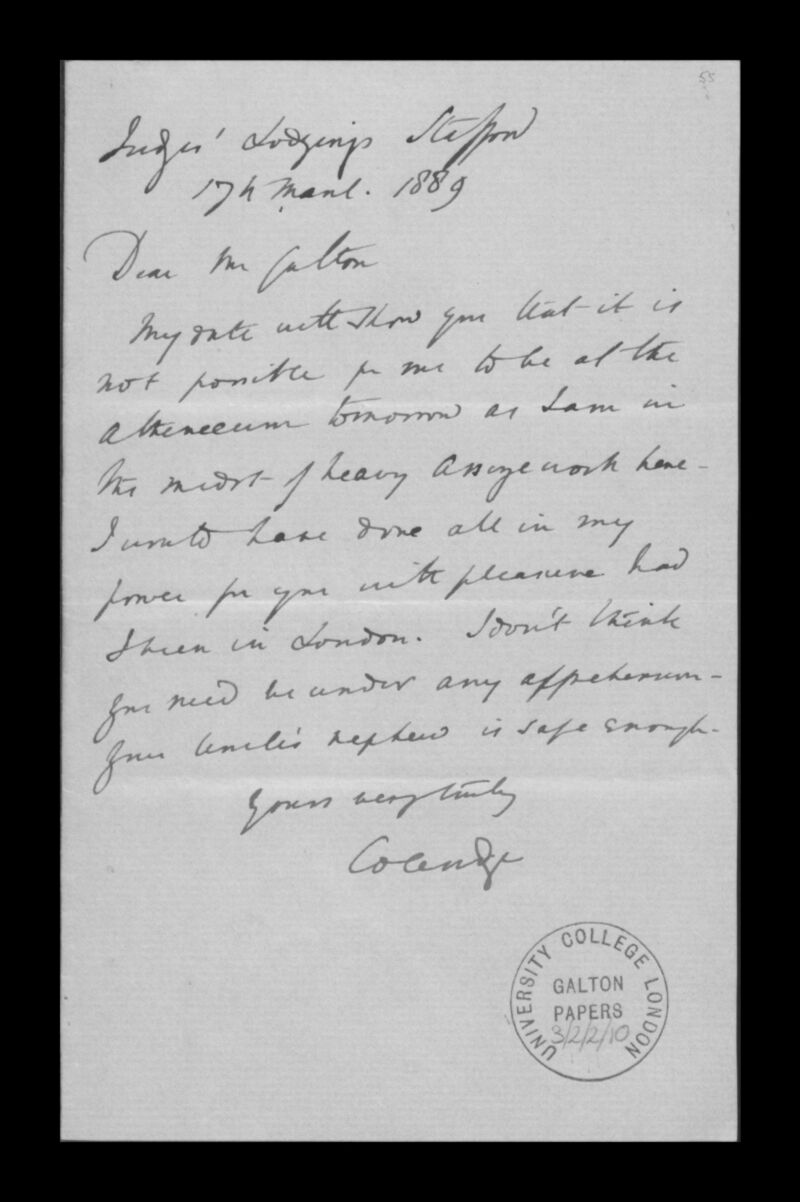 55
Judges' Lodgings Stafford
17th March. 1889
Dear Mr Galton
My date will show you that it is
not possible for me to be at the
Atheneeum tomorrow as I am in
the midst of heavy Assize work here -
I would have done all in my
power for you with pleasure had
I been in London. I don't think
you need be under any apprehension -
Your Uncle's nephew is safe enough -
Yours very truly
Coleridge
UNIVERSITY COLLEGE LONDON
GALTON
PAPERS
3/2/2/10